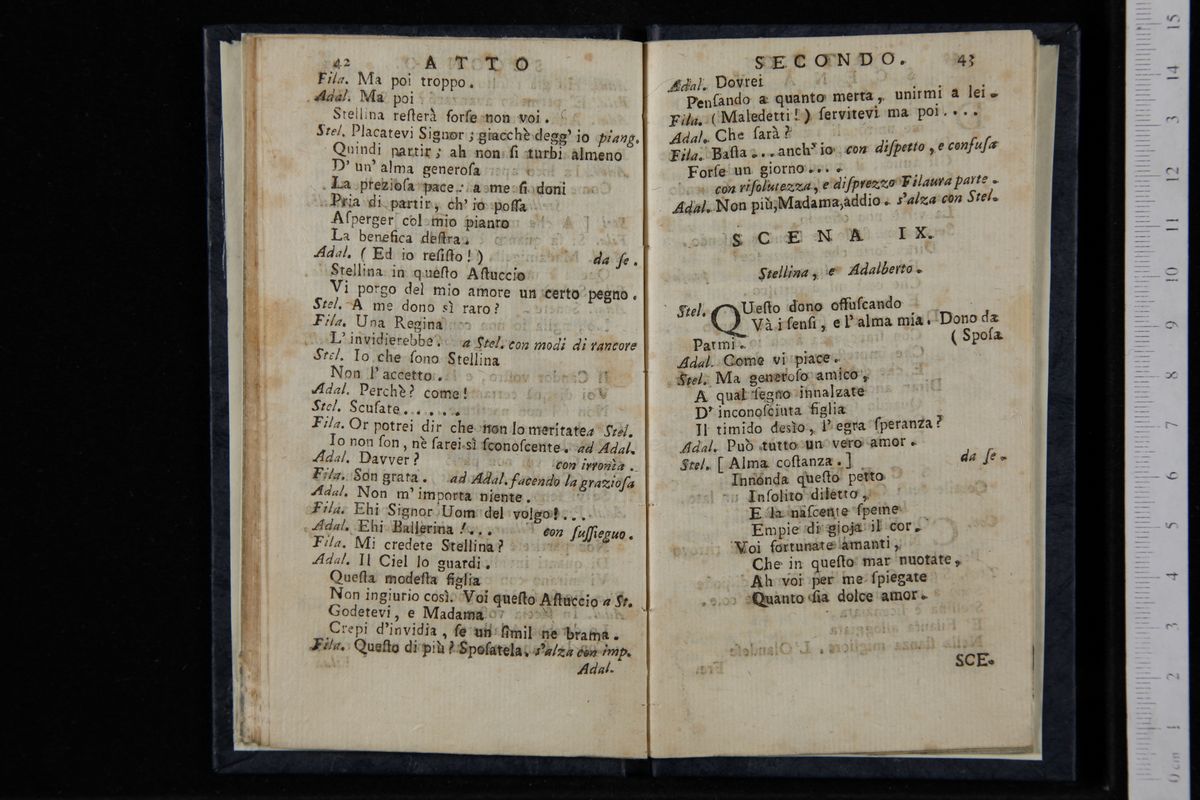 42 ATTO
Fila. Ma poi troppo.
Adal. Ma poi
Stellina reſterà forſe non voi.
Stel. Placatevi Signor; giacchè degg' io piang.
Quindi partir; ah non ſi turbi almeno
D' un' alma generoſa
La prezioſa pace: a me ſi doni
Pria di partir, ch' io poſſa
Aſperger col mio pianto
La benefica deſtra.
Adal. (Ed io reſiſto!) da ſe.
Stellina in queſto Aſtuccio
Vi porgo del mio amore un certo pegno.
Stel. A me dono sì raro?
Fila. Una Regina
L' invidierebbe. a Stel. con modi di rancore
Stel. Io che ſono Stellina
Non l' accetto.
Adal. Perchè? come!
Stel. Scuſate......
Fila. Or potrei dir che non lo meritate a Stel.
Io non ſon, nè ſarei sì ſconoſcente. ad Adal.
Adal. Davver? con irronìa.
Fila. Son grata. ad Adal. facendo la grazioſa
Adal. Non m' importa niente.
Fila. Ehi Signor Uom del volgo!...
Adal. Ehi Ballerina!... con ſuſſieguo.
Fila. Mi credete Stellina?
Adal. Il Ciel lo guardi.
Queſta modeſta figlia
Non ingiurio così. Voi queſto Aſtuccio a St.
Godetevi, e Madama
Crepi d'invidia, ſe un ſimil ne brama.
Fila. Queſto di più? Spoſatela. s'alza con imp.
Adal.
SECONDO. 43
Adal. Dovrei
Penſando a quanto merta, unirmi a lei.
Fila. (Maledetti!) ſervitevi ma poi....
Adal. Che ſarà?
Fila. Baſta... anch' io con diſpetto, e confuſa
Forſe un giorno....
con riſolutezza, e diſprezzo Filaura parte.
Adal. Non più, Madama, addio. s'alza con Stel.
SCENA IX.
Stellina, e Adalberto.
Stel. QUeſto dono offuſcando
Và i ſenſi, e l' alma mia. Dono da
Parmi. (Spoſa
Adal. Come vi piace.
Stel. Ma generoſo amico,
A qual ſegno innalzate
D' inconoſciuta figlia
Il timido desìo, l' egra ſperanza?
Adal. Può tutto un vero amor.
Stel. [Alma coſtanza.] da ſe.
Innonda queſto petto
Inſolito diletto,
E la naſcente ſpeme
Empie di gioja il cor.
Voi fortunate amanti,
Che in queſto mar nuotate,
Ah voi per me ſpiegate
Quanto ſia dolce amor.
SCE.
0 cm 1 2 3 4 5 6 7 8 9 10 11 12 13 14 15